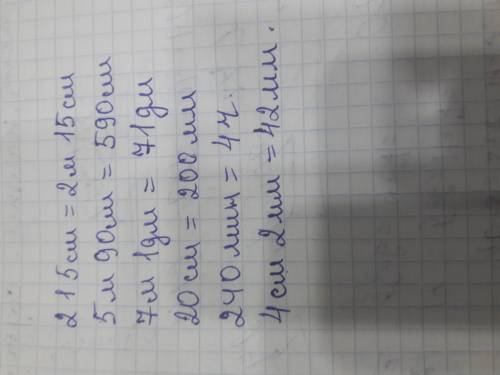 215см = 2м 15см
5м 90см = 590см
7м 1дм = 71дм
20см = 200мм
240мин = 4ч.
4см 2мм = 42мм.